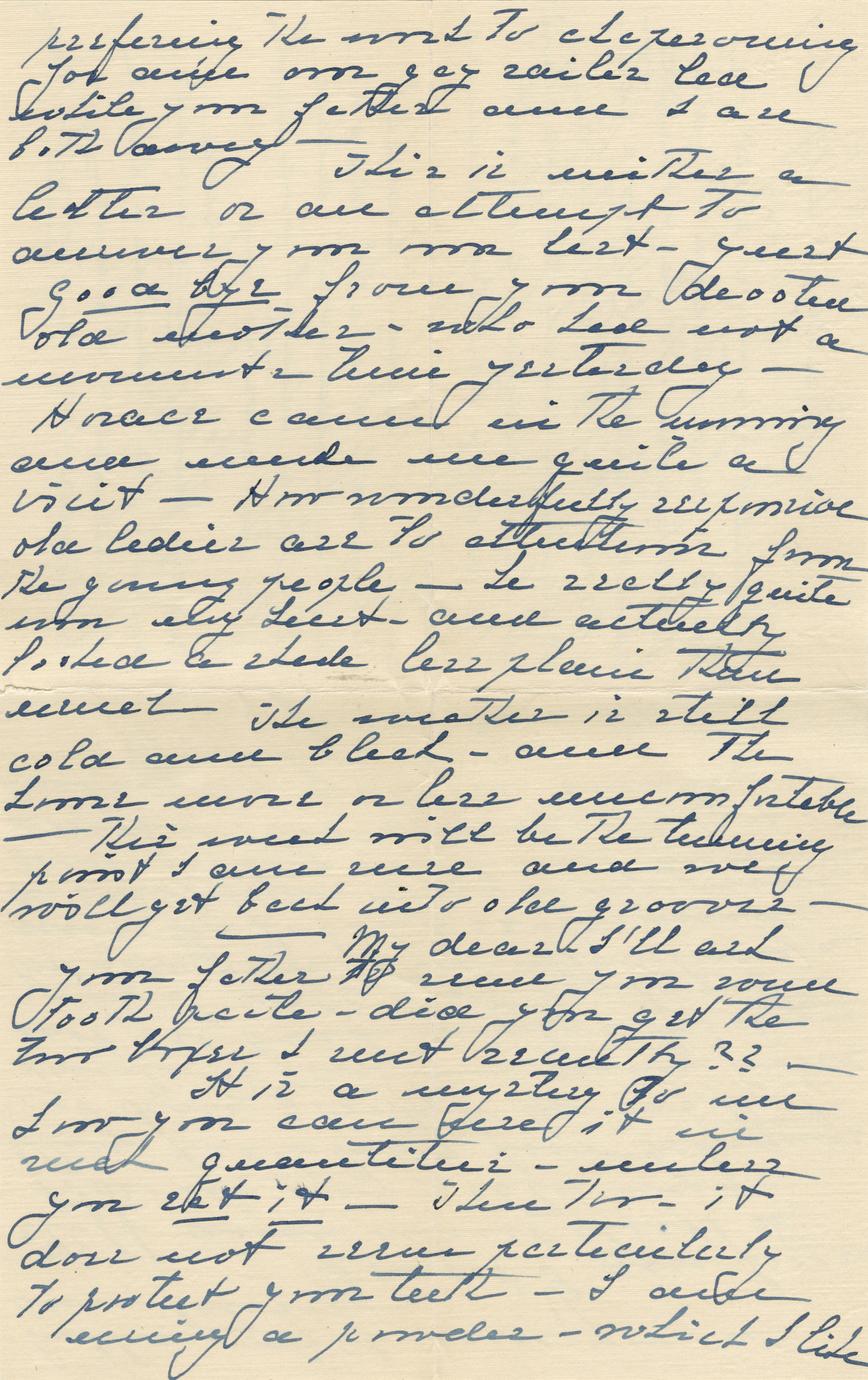 prefering the work to chaperoning
You and our gay sailor lad
while your father and I are
both away —
This is neither a
letter or an attempt to
answer your own last - just
good bye from your devoted
old mother - who had not a
moments time yesterday —
Horace came in the morning
and made me quite a
visit — How wonderfully responsive
old ladies are to attention from
the young people — he really quite
won my heart - and actually
looked a shade less plain than
usual — The weather is still
cold and bleak - and the
house more or less uncomfortable
— this week will be the turning
point I am sure and we
will get back into old grooves —
My dear - I'll ask
your father to send you some
tooth paste - did you get the
two boxes I sent recently ?? —
It is a mystery to me
how you can use it in
such quantities - unless
you eat it — Then too - it
does not seem particularly
to protect your teeth - I am
using a powder - which I like